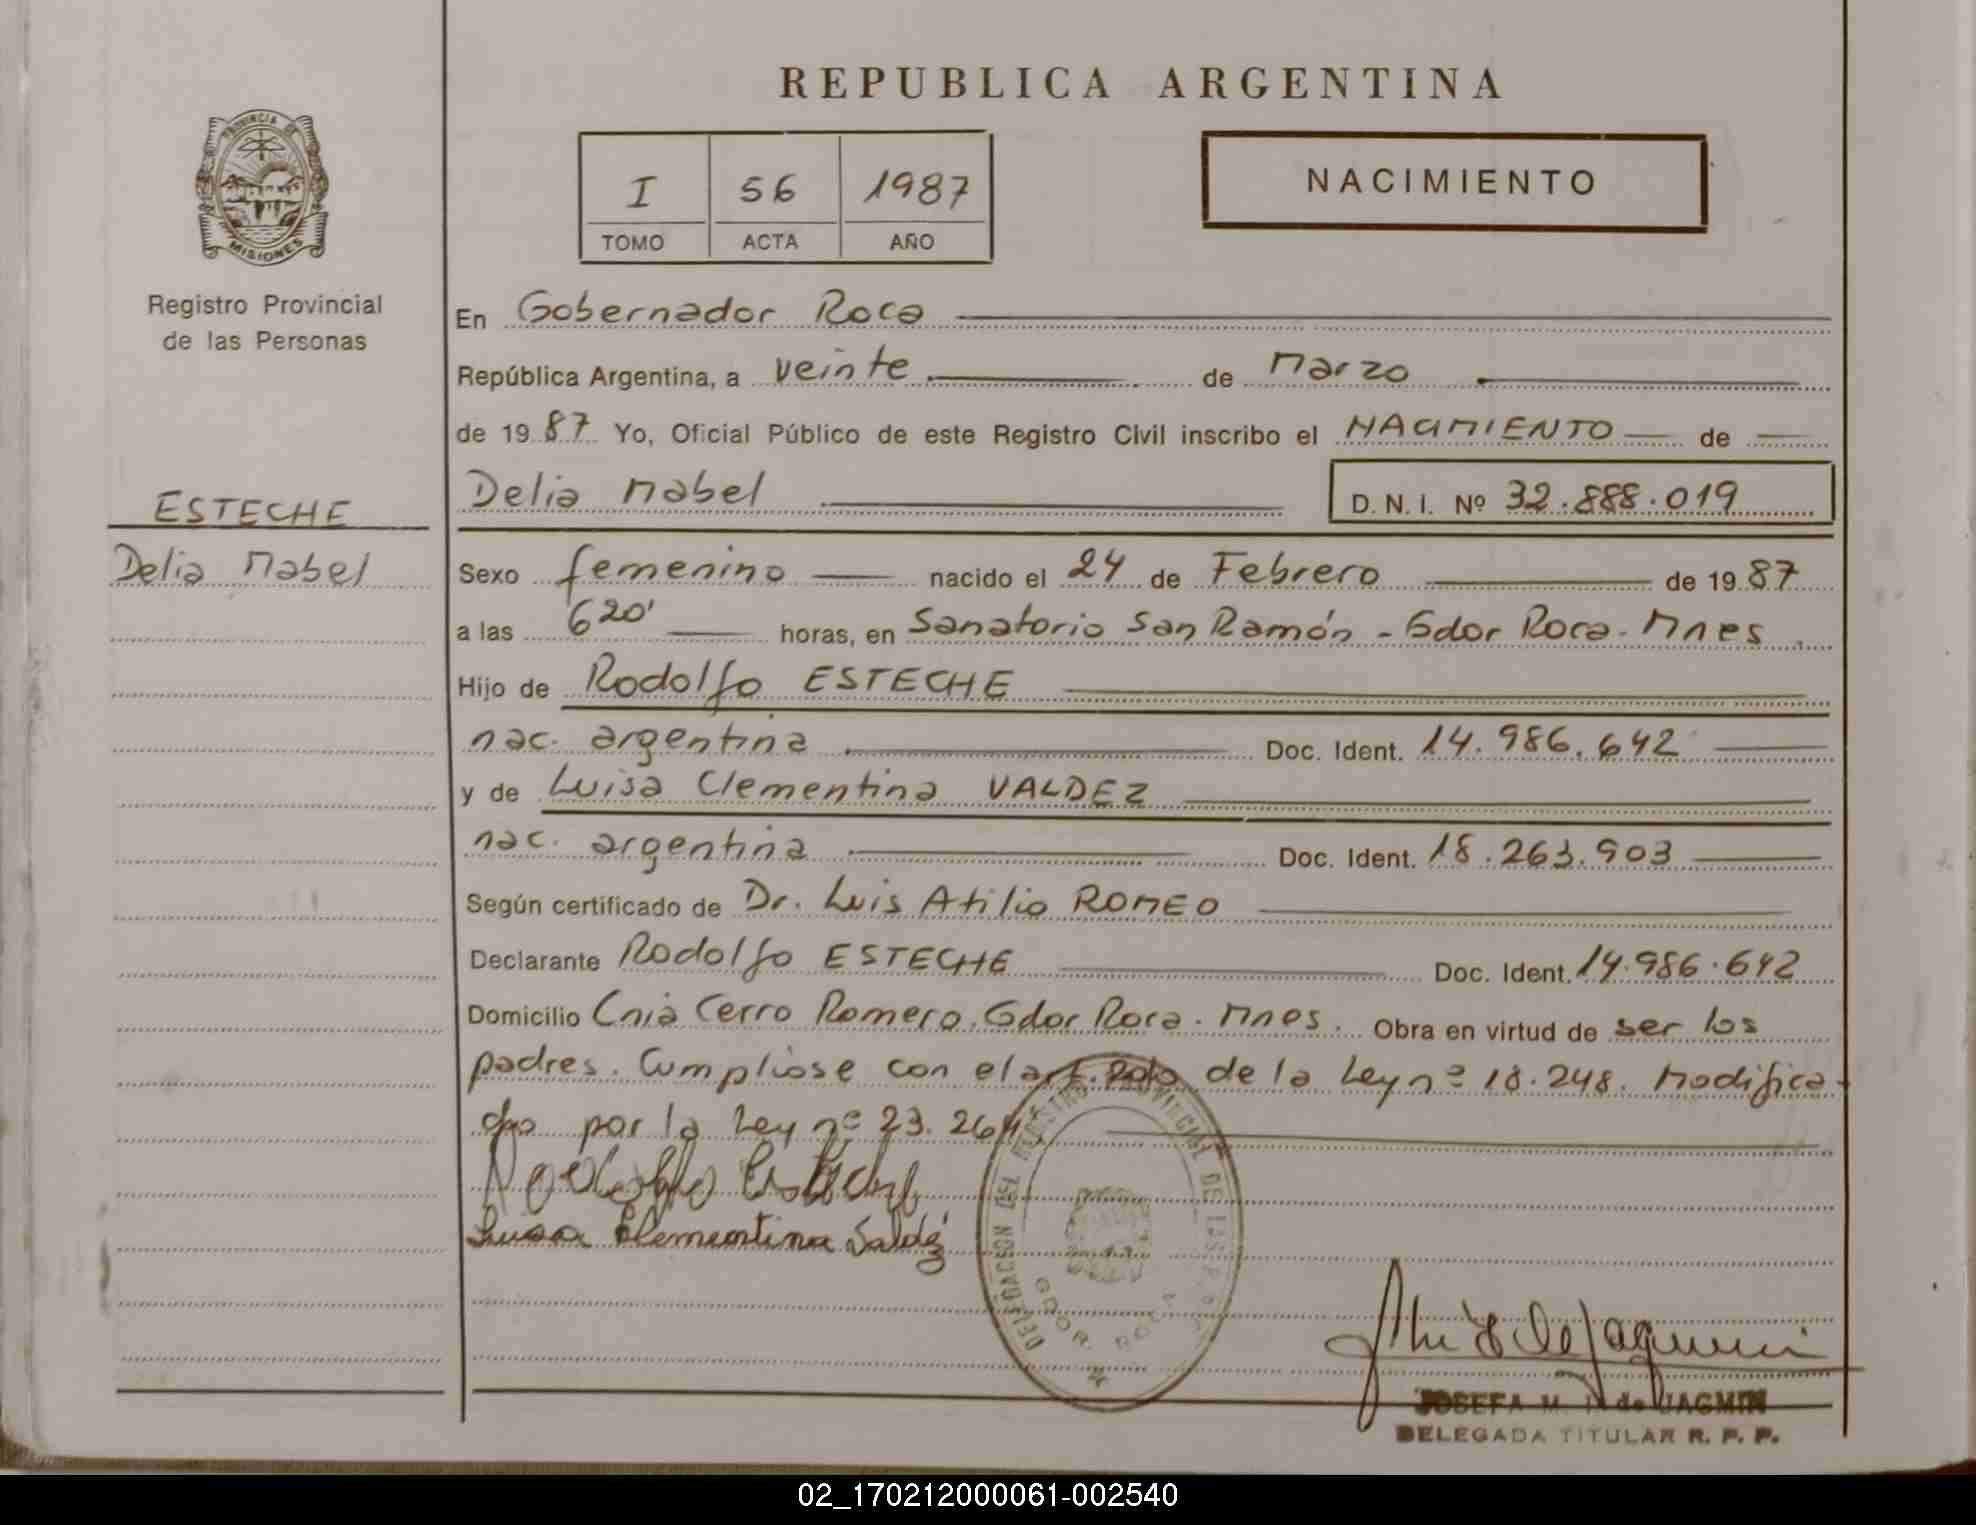 REPUBLICA ARGENTINA
PROVINCIA DE
MISIONES
Registro Provincial
de las Personas
I 56 1987
TOMO ACTA AÑO
NACIMIENTO
En Gobernador Roca
República Argentina, a veinte de Marzo
de 1987 Yo, Oficial Público de este Registro Civil inscribo el NACIMIENTO de
Delia Mabel D. N. I. Nº 32.888.019
ESTECHE
Delia Mabel
Sexo femenino nacido el 24 de Febrero de 1987
a las 620' horas, en Sanatorio San Ramón - Gdor Roca. Mnes.
Hijo de Rodolfo ESTECHE
nac. argentina Doc. Ident. 14.986.642
y de Luisa Clementina VALDEZ
nac. argentina Doc. Ident. 18.263.903
Según certificado de Dr. Luis Atilio ROMEO
Declarante Rodolfo ESTECHE Doc. Ident. 14.986.642
Domicilio Cnia Cerro Romero. Gdor Roca. Mnes. Obra en virtud de ser los
padres. Cumpliose con el art. de la Ley nº 18.248. Modifica-
por la Ley nº 23.264
Rodolfo Esteche
Luisa Clementina Valdéz
DELEGACION DEL REGISTRO PROVINCIAL DE LAS
GDOR. ROCA
JOSEFA M. de JAGMIN
DELEGADA TITULAR R. P. P.
02_170212000061-002540